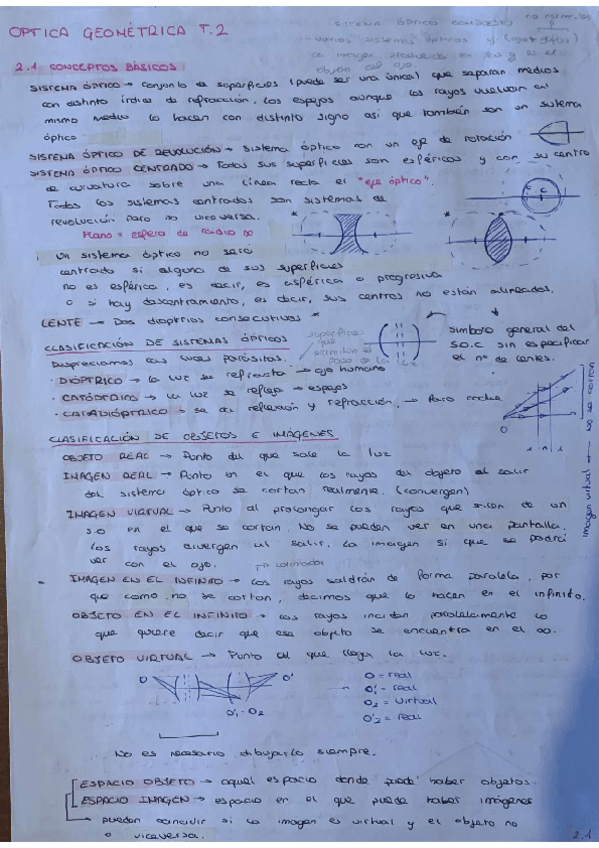 OPTICA GEOMÉTRICA T.2
SISTEMA ÓPTICO COMPUESTO
varios sistemas ópticos y
2.1 CONCEPTOS BÁSICOS
SISTEMA ÓPTICO → conjunto de superficies (puede ser una única) que separan medios
con distinto índice de refracción. Los espejos aunque los rayos vuelvan al
mismo medio lo hacen con distinto signo así que también son un sistema
óptico
SISTEMA ÓPTICO DE REVOLUCIÓN → Sistema óptico con un eje de rotación
SISTEMA ÓPTICO CENTRADO → Todas sus superficies son esféricas y con su centro
de curvatura sobre una línea recta el "eje óptico".
Todos los sistemas centrados son sistemas de
revolución pero no viceversa.
Plano = esfera de radio ∞
Un sistema óptico no será
centrado si alguna de sus superficies
no es esférica, es decir, es asférica o progresiva
o si hay descentramiento, es decir, sus centros no están alineados.
LENTE → Dos dioptrios consecutivos *
CLASIFICACIÓN DE SISTEMAS ÓPTICOS
superficies que permiten el paso de la luz
símbolo general del
S.O.C sin especificar
el nº de lentes.
Despreciamos las luces parásitas.
· DIÓPTRICO → la luz se refracta → ojo humano
· CATÓPTRICO → la luz se refleja → espejos
· CATADIÓPTRICO → se da reflexión y refracción. → Faro coche
CLASIFICACIÓN DE OBJETOS E IMÁGENES
OBJETO REAL → Punto del que sale la luz
IMAGEN REAL → Punto en el que los rayos del objeto al salir
del sistema óptico se cortan realmente. (convergen)
IMAGEN VIRTUAL → Punto al prolongar los rayos que salen de un
S.O en el que se cortan. No se pueden ver en una pantalla.
Los rayos divergen al salir. La imagen si que se podrá
ver con el ojo.
imagen virtual ← no se cortan
IMAGEN EN EL INFINITO → Los rayos saldrán de forma paralela, por
que como no se cortan, decimos que lo hacen en el infinito.
OBJETO EN EL INFINITO → Los rayos incidan paralelamente lo
que quiere decir que ese objeto se encuentra en el ∞.
OBJETO VIRTUAL → Punto al que llega la luz.
O O'
O'₁ = O₂
O = real
O'₁ = real
O₂ = virtual
O'₂ = real
No es necesario dibujarlo siempre.
ESPACIO OBJETO → aquel espacio donde puede haber objetos.
ESPACIO IMAGEN → espacio en el que puede haber imágenes
→ pueden coincidir si la imagen es virtual y el objeto no
o viceversa.
2.1